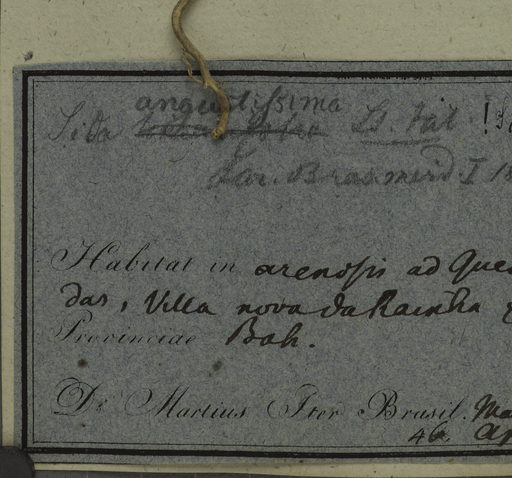 angustissima
Sida St. Hil. !
Flor. Bras. merid. I 18
Habitat in arenosis ad Que
das, Villa nova da Rainha
Provinciae Bah.
Dr Martius Iter Brasil. Ma
46. Ap